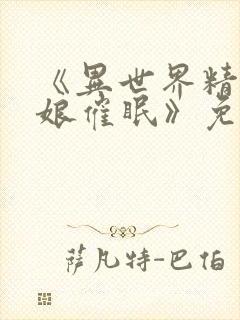 《異世界精
娘催眠》免
萨凡特-巴伯